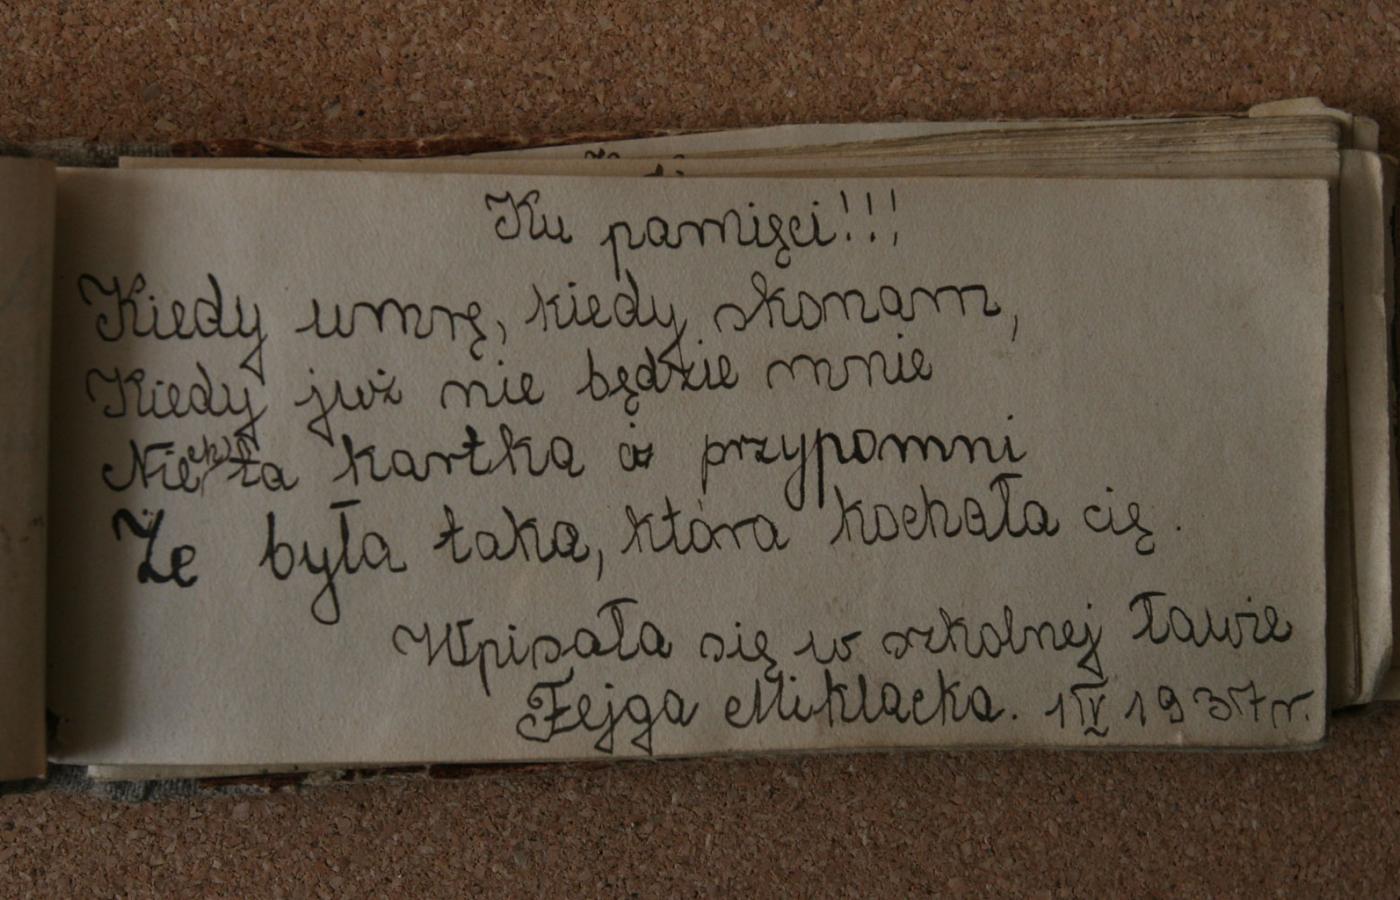 Ku pamięci!!!
Kiedy umrę, kiedy skonam,
Kiedy już nie będzie mnie
Niechaj ta kartka ci przypomni
Że była taka, która kochała cię.
Wpisała się w szkolnej ławie
Fejga Miklacka. 1 IV 1937 r.